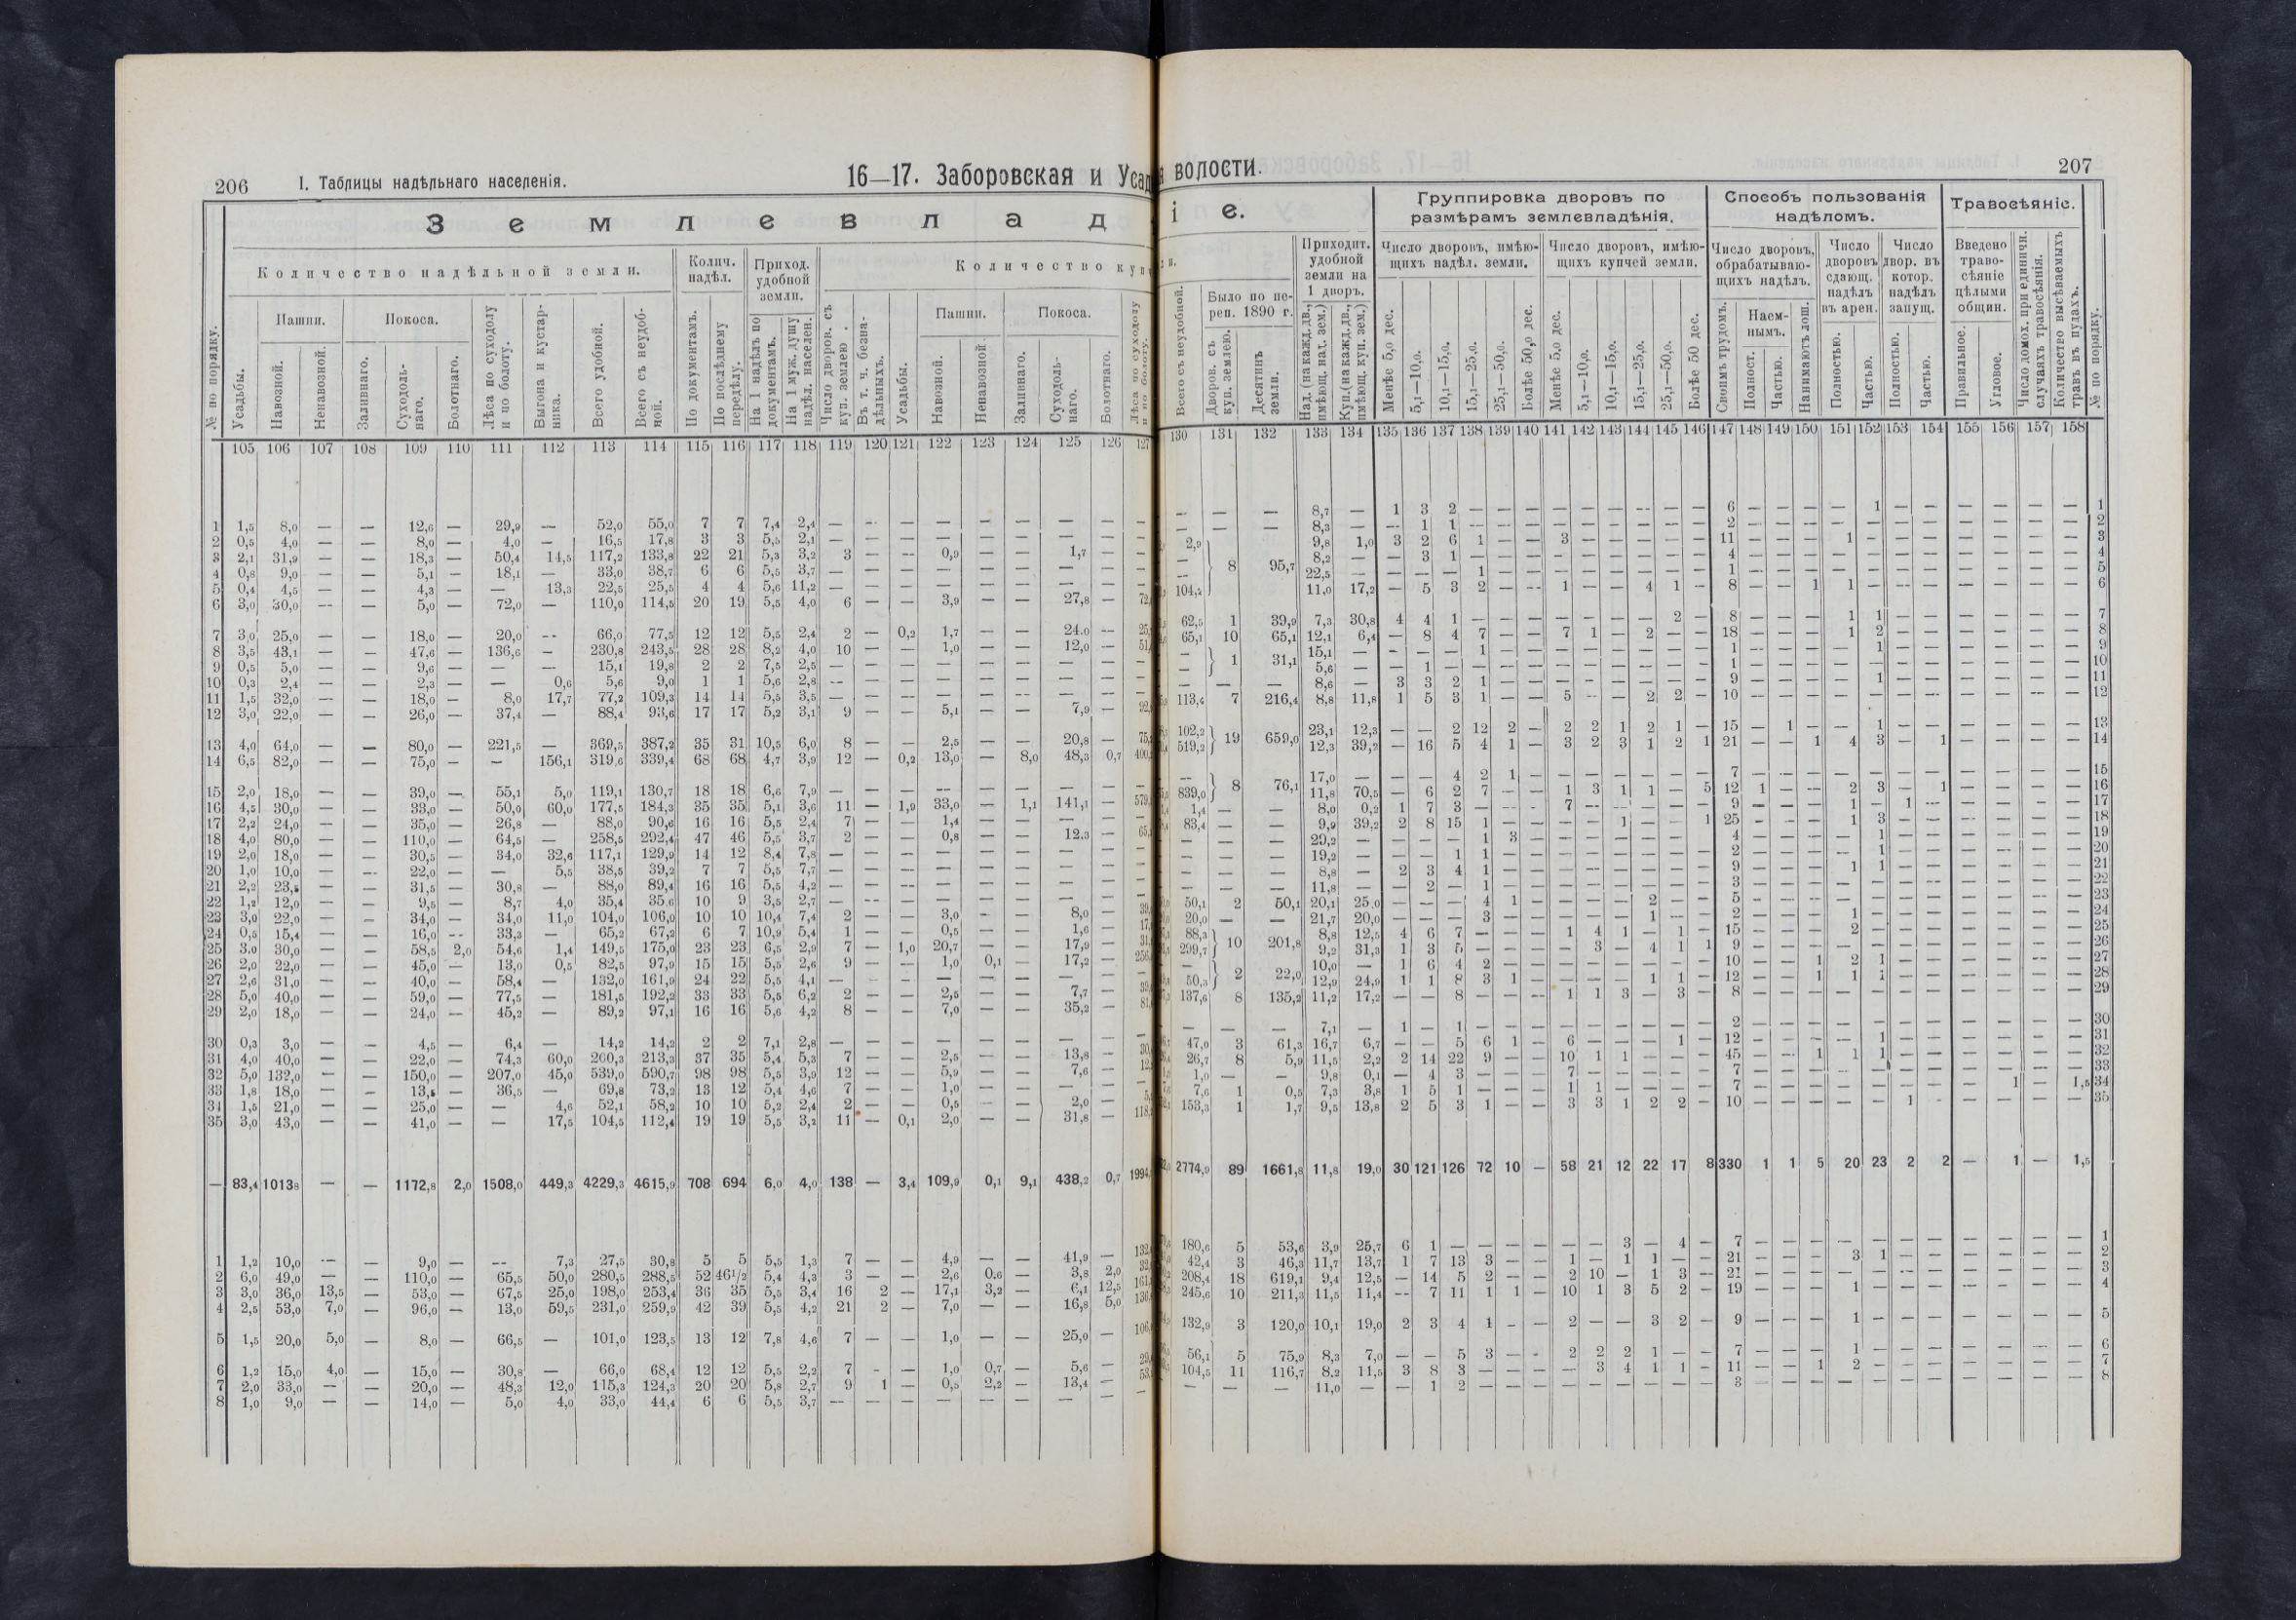 206 I. Таблицы надѣльнаго населенія. 16—17. Заборовская и Усад
З е м л е в л а д
Количество надѣльной земли. Колич. надѣл. Приход. удобной земли. Количество куп
№ по порядку. Усадьбы. Пашни. Навозной. Ненавозной. Покоса. Заливнаго. Суходольнаго. Болотнаго. Лѣса по суходолу и по болоту. Выгона и кустарника. Всего удобной. Всего съ неудобной. По документамъ. По послѣднему передѣлу. На 1 надѣлъ по документамъ. На 1 муж. душу надѣл. населен. Число дворов. съ куп. землею. Въ т. ч. безнадѣльныхъ. Усадьбы. Пашни. Навозной. Ненавозной Покоса. Заливнаго. Суходольнаго. Болотнаго. Лѣса по суходолу и по болоту.
105 106 107 108 109 110 111 112 113 114 115 116 117 118 119 120 121 122 123 124 125 126 127
1 1,5 8,0 — — 12,6 — 29,9 — 52,0 55,0 7 7 7,4 2,4 — — — — — — — —
2 0,5 4,0 — — 8,0 — 4,0 — 16,5 17,8 3 3 5,5 2,1 — — — — — — — —
3 2,1 31,9 — — 18,3 — 50,4 14,5 117,2 133,8 22 21 5,3 3,2 3 — — 0,9 — — 1,7 —
4 0,8 9,0 — — 5,1 — 18,1 — 33,0 38,7 6 6 5,5 3,7 — — — — — — — —
5 0,4 4,5 — — 4,3 — — 13,3 22,5 25,5 4 4 5,6 11,2 — — — — — — — —
6 3,0 30,0 — — 5,0 — 72,0 — 110,0 114,5 20 19 5,5 4,0 6 — — 3,9 — — 27,8 — 72,
7 3,0 25,0 — — 18,0 — 20,0 — 66,0 77,5 12 12 5,5 2,4 2 — 0,2 1,7 — — 24,0 — 25,
8 3,5 43,1 — — 47,6 — 136,6 — 230,8 243,5 28 28 8,2 4,0 10 — — 1,0 — — 12,0 — 51,
9 0,5 5,0 — — 9,6 — — — 15,1 19,8 2 2 7,5 2,5 — — — — — — — —
10 0,3 2,4 — — 2,3 — — 0,6 5,6 9,0 1 1 5,6 2,8 — — — — — — — —
11 1,5 32,0 — — 18,0 — 8,0 17,7 77,2 109,3 14 14 5,5 3,5 — — — — — — — —
12 3,0 22,0 — — 26,0 — 37,4 — 88,4 93,6 17 17 5,2 3,1 9 — — 5,1 — — 7,9 — 92,
13 4,0 64,0 — — 80,0 — 221,5 — 369,5 387,2 35 31 10,5 6,0 8 — — 2,5 — — 20,8 — 75,
14 6,5 82,0 — — 75,0 — — 156,1 319,6 339,4 68 68 4,7 3,9 12 — 0,2 13,0 — 8,0 48,3 0,7 400,
15 2,0 18,0 — — 39,0 — 55,1 5,0 119,1 130,7 18 18 6,6 7,9 — — — — — — — —
16 4,5 30,0 — — 33,0 — 50,0 60,0 177,5 184,3 35 35 5,1 3,6 11 — 1,9 33,0 — 1,1 141,1 — 579,
17 2,2 24,0 — — 35,0 — 26,8 — 88,0 90,6 16 16 5,5 2,4 7 — — 1,4 — — — —
18 4,0 80,0 — — 110,0 — 64,5 — 258,5 292,4 47 46 5,5 3,7 2 — — 0,8 — — 12,3 — 65,
19 2,0 18,0 — — 30,5 — 34,0 32,6 117,1 129,9 14 12 8,4 7,8 — — — — — — — —
20 1,0 10,0 — — 22,0 — — 5,5 38,5 39,2 7 7 5,5 7,7 — — — — — — — —
21 2,2 23,5 — — 31,5 — 30,8 — 88,0 89,4 16 16 5,5 4,2 — — — — — — — —
22 1,2 12,0 — — 9,5 — 8,7 4,0 35,4 35,6 10 9 3,5 2,7 — — — — — — — —
23 3,0 22,0 — — 34,0 — 34,0 11,0 104,0 106,0 10 10 10,4 7,4 2 — — 3,0 — — 8,0 — 39,
24 0,5 15,4 — — 16,0 — 33,3 — 65,2 67,2 6 7 10,9 5,4 1 — — 0,5 — — 1,6 — 17,
25 3,0 30,0 — — 58,5 2,0 54,6 1,4 149,5 175,0 23 23 6,5 2,9 7 — 1,0 20,7 — — 17,9 — 31,
26 2,0 22,0 — — 45,0 — 13,0 0,5 82,5 97,9 15 15 5,5 2,6 9 — — 1,0 0,1 — 17,2 — 256,
27 2,6 31,0 — — 40,0 — 58,4 — 132,0 161,9 24 22 5,5 4,1 — — — — — — — —
28 5,0 40,0 — — 59,0 — 77,5 — 181,5 192,2 33 33 5,5 6,2 2 — — 2,5 — — 7,7 — 39,
29 2,0 18,0 — — 24,0 — 45,2 — 89,2 97,1 16 16 5,6 4,2 8 — — 7,0 — — 35,2 — 81,
30 0,3 3,0 — — 4,5 — 6,4 — 14,2 14,2 2 2 7,1 2,8 — — — — — — — —
31 4,0 40,0 — — 22,0 — 74,3 60,0 200,3 213,3 37 35 5,4 5,3 7 — — 2,5 — — 13,8 — 30,
32 5,0 132,0 — — 150,0 — 207,0 45,0 539,0 590,7 98 98 5,5 3,9 12 — — 5,9 — — 7,6 — 12,
33 1,8 18,0 — — 13,5 — 36,5 — 69,8 73,2 13 12 5,4 4,6 7 — — 1,0 — — — —
34 1,5 21,0 — — 25,0 — — 4,6 52,1 58,2 10 10 5,2 2,4 2 — — 0,5 — — 2,0 — 5,
35 3,0 43,0 — — 41,0 — — 17,5 104,5 112,4 19 19 5,5 3,2 11 — 0,1 2,0 — — 31,8 — 118,
— 83,4 1013,8 — — 1172,8 2,0 1508,0 449,3 4229,3 4615,9 708 694 6,0 4,0 138 — 3,4 109,9 0,1 9,1 438,2 0,7 1994,
1 1,2 10,0 — — 9,0 — — 7,3 27,5 30,8 5 5 5,5 1,3 7 — — 4,9 — — 41,9 — 132,
2 6,0 49,0 — — 110,0 — 65,5 50,0 280,5 288,5 52 46½ 5,4 4,3 3 — — 2,6 0,6 — 3,8 2,0 32,
3 3,0 36,0 13,5 — 53,0 — 67,5 25,0 198,0 253,4 36 35 5,5 3,4 16 2 — 17,1 3,2 — 6,1 12,5 161,
4 2,5 53,0 7,0 — 96,0 — 13,0 59,5 231,0 259,9 42 39 5,5 4,2 21 2 — 7,0 — — 16,8 5,0 136,
5 1,5 20,0 5,0 — 8,0 — 66,5 — 101,0 123,5 13 12 7,8 4,6 7 — — 1,0 — — 25,0 — 106,
6 1,2 15,0 4,0 — 15,0 — 30,8 — 66,0 68,4 12 12 5,5 2,2 7 — — 1,0 0,7 — 5,6 — 29,
7 2,0 33,0 — — 20,0 — 48,3 12,0 115,3 124,3 20 20 5,8 2,7 9 1 — 0,5 2,2 — 13,4 — 53,
8 1,0 9,0 — — 14,0 — 5,0 4,0 33,0 44,4 6 6 5,5 3,7 — — — — — — — — —
волости. 207
і е. Группировка дворовъ по размѣрамъ землевладѣнія. Способъ пользованія надѣломъ. Травосѣяніе.
Всего съ неудобной. Было по переп. 1890 г. Дворов. съ куп. землею. Десятинъ земли. Приходит. удобной земли на 1 дворъ. Над. (на кажд. дв., имѣющ. над. зем.) Куп. (на кажд. дв., имѣющ. куп. зем.) Число дворовъ, имѣющихъ надѣл. земли. Менѣе 5,0 дес. 5,1—10,0. 10,1—15,0. 15,1—25,0. 25,1—50,0. Болѣе 50,0 дес. Число дворовъ, имѣющихъ купчей земли. Менѣе 5,0 дес. 5,1—10,0. 10,1—15,0. 15,1—25,0. 25,1—50,0. Болѣе 50 дес. Число дворовъ, обрабатывающихъ надѣлъ. Своимъ трудомъ. Наемнымъ. Полност. Частью. Нанимаютъ лош. Число дворовъ сдающ. надѣлъ въ арен. Полностью. Частью. Число двор. въ котор. надѣлъ запущ. Полностью. Частью. Введено травосѣяніе цѣлыми общин. Правильное. Угловое. Число домох. при единичн. случаяхъ травосѣянія. Количество высѣваемыхъ травъ въ пудахъ. № по порядку.
130 131 132 133 134 135 136 137 138 139 140 141 142 143 144 145 146 147 148 149 150 151 152 153 154 155 156 157 158
— — — 8,7 — 1 3 2 — — — — — — — — — 6 — — — — 1 — — — — — — 1
— — — 8,3 — — 1 1 — — — — — — — — — 2 — — — — — — — — — — — 2
2,9 9,8 1,0 3 2 6 1 — — 3 — — — — — 11 — — — 1 — — — — — — — 3
— 8 95,7 8,2 — — 3 1 — — — — — — — — — 4 — — — — — — — — — — — 4
— 22,5 — — — — 1 — — — — — — — — 1 — — — — — — — — — — — 5
104,2 11,0 17,2 — 5 3 2 — — 1 — — 4 1 — 8 — — 1 1 — — — — — — — 6
62,5 1 39,9 7,3 30,8 4 4 1 — — — — — — — 2 — 8 — — — 1 1 — — — — — — 7
65,1 10 65,1 12,1 6,4 — 8 4 7 — — 7 1 — 2 — — 18 — — — 1 2 — — — — — — 8
— 1 31,1 15,1 — — — — 1 — — — — — — — — 1 — — — — 1 — — — — — — 9
— 5,6 — — 1 — — — — — — — — — — 1 — — — — — — — — — — — 10
— — — 8,6 — 3 3 2 1 — — — — — — — — 9 — — — — 1 — — — — — — 11
113,4 7 216,4 8,8 11,8 1 5 3 1 — — 5 — — 2 2 — 10 — — — — — — — — — — — 12
102,2 19 659,0 23,1 12,3 — — 2 12 2 — 2 2 1 2 1 — 15 — 1 — — 1 — — — — — — 13
519,2 12,3 39,2 — 16 5 4 1 — 3 2 3 1 2 1 21 — — 1 4 3 — 1 — — — — 14
— 8 76,1 17,0 — — — 4 2 1 — — — — — — — 7 — — — — — — — — — — — 15
839,0 11,8 70,5 — 6 2 7 — — 1 3 1 1 — 5 12 1 — — 2 3 — 1 — — — — 16
1,4 — — 8,0 0,2 1 7 3 — — — 7 — — — — — 9 — — — 1 — 1 — — — — — 17
83,4 — — 9,9 39,2 2 8 15 1 — — — — 1 — — 1 25 — — — 1 3 — — — — — — 18
— — — 29,2 — — — — 1 3 — — — — — — — 4 — — — — 1 — — — — — — 19
— — — 19,2 — — — 1 1 — — — — — — — — 2 — — — — 1 — — — — — — 20
— — — 8,8 — 2 3 4 1 — — — — — — — — 9 — — — 1 1 — — — — — — 21
— — — 11,8 — — 2 — 1 — — — — — — — — 3 — — — — — — — — — — — 22
50,1 2 50,1 20,1 25,0 — — — 4 1 — — — — 2 — — 5 — — — — — — — — — — — 23
20,0 — — 21,7 20,0 — — — 3 — — — — — 1 — — 2 — — — 1 — — — — — — — 24
88,3 10 201,8 8,8 12,5 4 6 7 — — — 1 4 1 — 1 — 15 — — — 2 — — — — — — — 25
299,7 9,2 31,3 1 3 5 — — — — 3 — 4 1 1 9 — — — — — — — — — — — 26
— 2 22,0 10,0 — 1 6 4 2 — — — — — — — — 10 — — 1 2 1 — — — — — — 27
50,3 12,9 24,9 1 1 8 3 1 — — — — 1 1 — 12 — — 1 1 1 — — — — — — 28
137,6 8 135,2 11,2 17,2 — — 8 — — — 1 1 3 — 3 — 8 — — — — — — — — — — — 29
— — — 7,1 — 1 — 1 — — — — — — — — — 2 — — — — — — — — — — — 30
47,0 3 61,3 16,7 6,7 — — 5 6 1 — 6 — — — 1 — 12 — — — — 1 — — — — — — 31
26,7 8 5,9 11,5 2,2 2 14 22 9 — — 10 1 1 — — — 45 — — 1 1 1 — — — — — — 32
1,0 — — 9,8 0,1 — 4 3 — — — 7 — — — — — 7 — — — — — — — — — — — 33
7,6 1 0,5 7,3 3,8 1 5 1 — — — 1 1 — — — — 7 — — — — — — — — 1 — 1,5 34
153,3 1 1,7 9,5 13,8 2 5 3 1 — — 3 3 1 2 2 — 10 — — — — — 1 — — — — — 35
2774,9 89 1661,8 11,8 19,0 30 121 126 72 10 — 58 21 12 22 17 8 330 1 1 5 20 23 2 2 — 1 — 1,5
180,6 5 53,6 3,9 25,7 6 1 — — — — — — 3 — 4 — 7 — — — — — — — — — — — 1
42,4 3 46,3 11,7 13,7 1 7 13 3 — — 1 — 1 1 — — 21 — — — 3 1 — — — — — — 2
208,4 18 619,1 9,4 12,5 — 14 5 2 — — 2 10 — 1 3 — 21 — — — — — — — — — — — 3
245,6 10 211,3 11,5 11,4 — 7 11 1 1 — 10 1 3 5 2 — 19 — — — 1 — — — — — — — 4
132,9 3 120,0 10,1 19,0 2 3 4 1 — — 2 — — 3 2 — 9 — — — 1 — — — — — — — 5
56,1 5 75,9 8,3 7,0 — — 5 3 — — 2 2 2 1 — — 7 — — — 1 — — — — — — — 6
104,5 11 116,7 8,2 11,5 3 8 3 — — — — 3 4 1 1 — 11 — — 1 2 — — — — — — — 7
— — — 11,0 — — 1 2 — — — — — — — — — 3 — — — — — — — — — — — 8